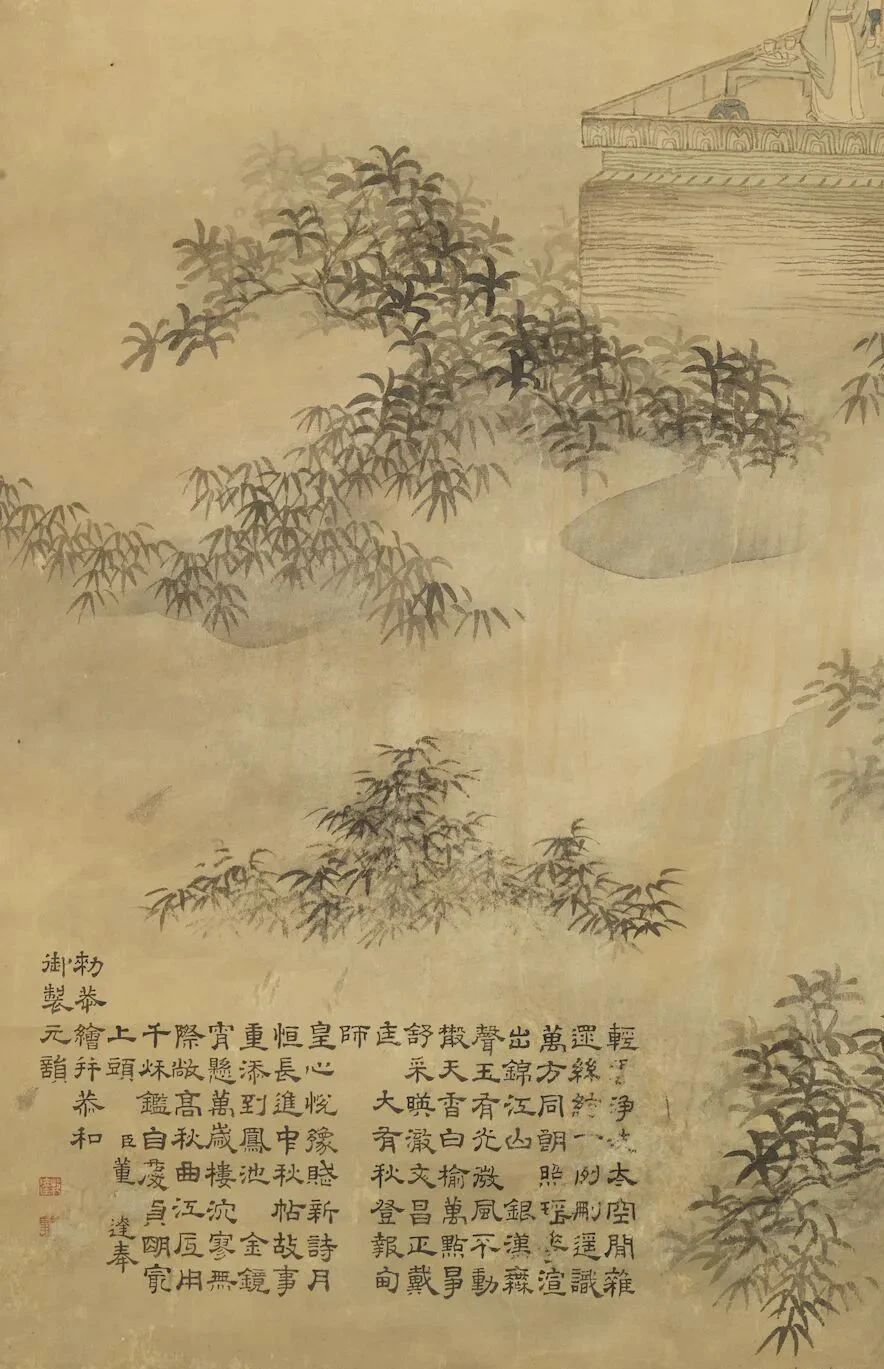 輕淨太空閒雜
遝絲紛一例刪遥識
萬方同朗照瑶渲
出錦江山 銀漢無
聲玉有光微風不動
散天香白榆萬點爭
舒采暎澈文昌正戴
匡 大有秋登報甸
師
皇心悅豫賜新詩月
恒長進中秋帖故事
重添到鳳池 金鏡
宵懸萬歲樓泬寥無
際敞高秋曲江底用
千秌鑑自慶貞明冠
上頭 臣董 達奉
勑恭繪并恭和
御製元韻